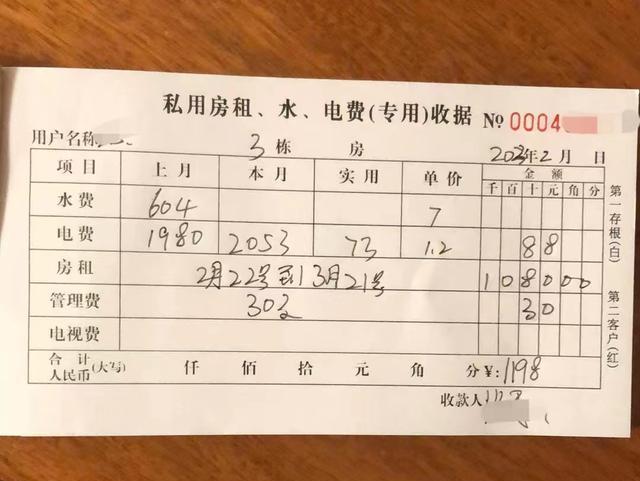 私用房租、水、电费(专用)收据 № 0004
用户名称 3 栋 房 2023年2月 日
项目 上月 本月 实用 单价 金额
千 百 十 元 角 分
水费 604 7
电费 1980 2053 73 1.2 88
房租 2月22号到3月21号 1 0 8 0 0 0
管理费 30 30
电视费
合计人民币(大写) 仟 佰 拾 元 角 分 ¥:1198
收款人
第一存根(白)
第二客户(红)